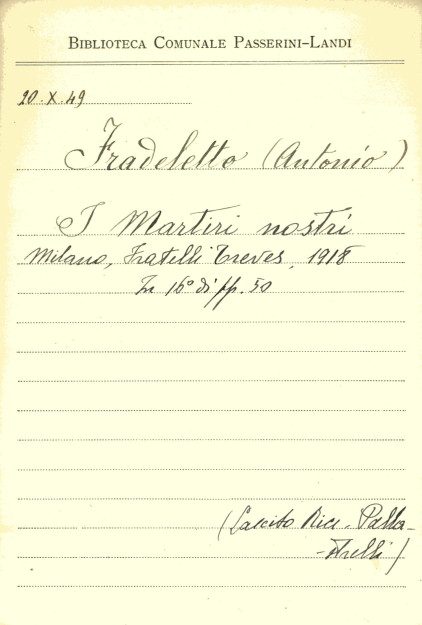 BIBLIOTECA COMUNALE PASSERINI-LANDI
20.X.49
Fradeletto (Antonio)
I Martiri nostri
Milano, Fratelli Treves, 1918
In 16° di pp. 50
(Lascito Ricc. Palla-
-strelli)